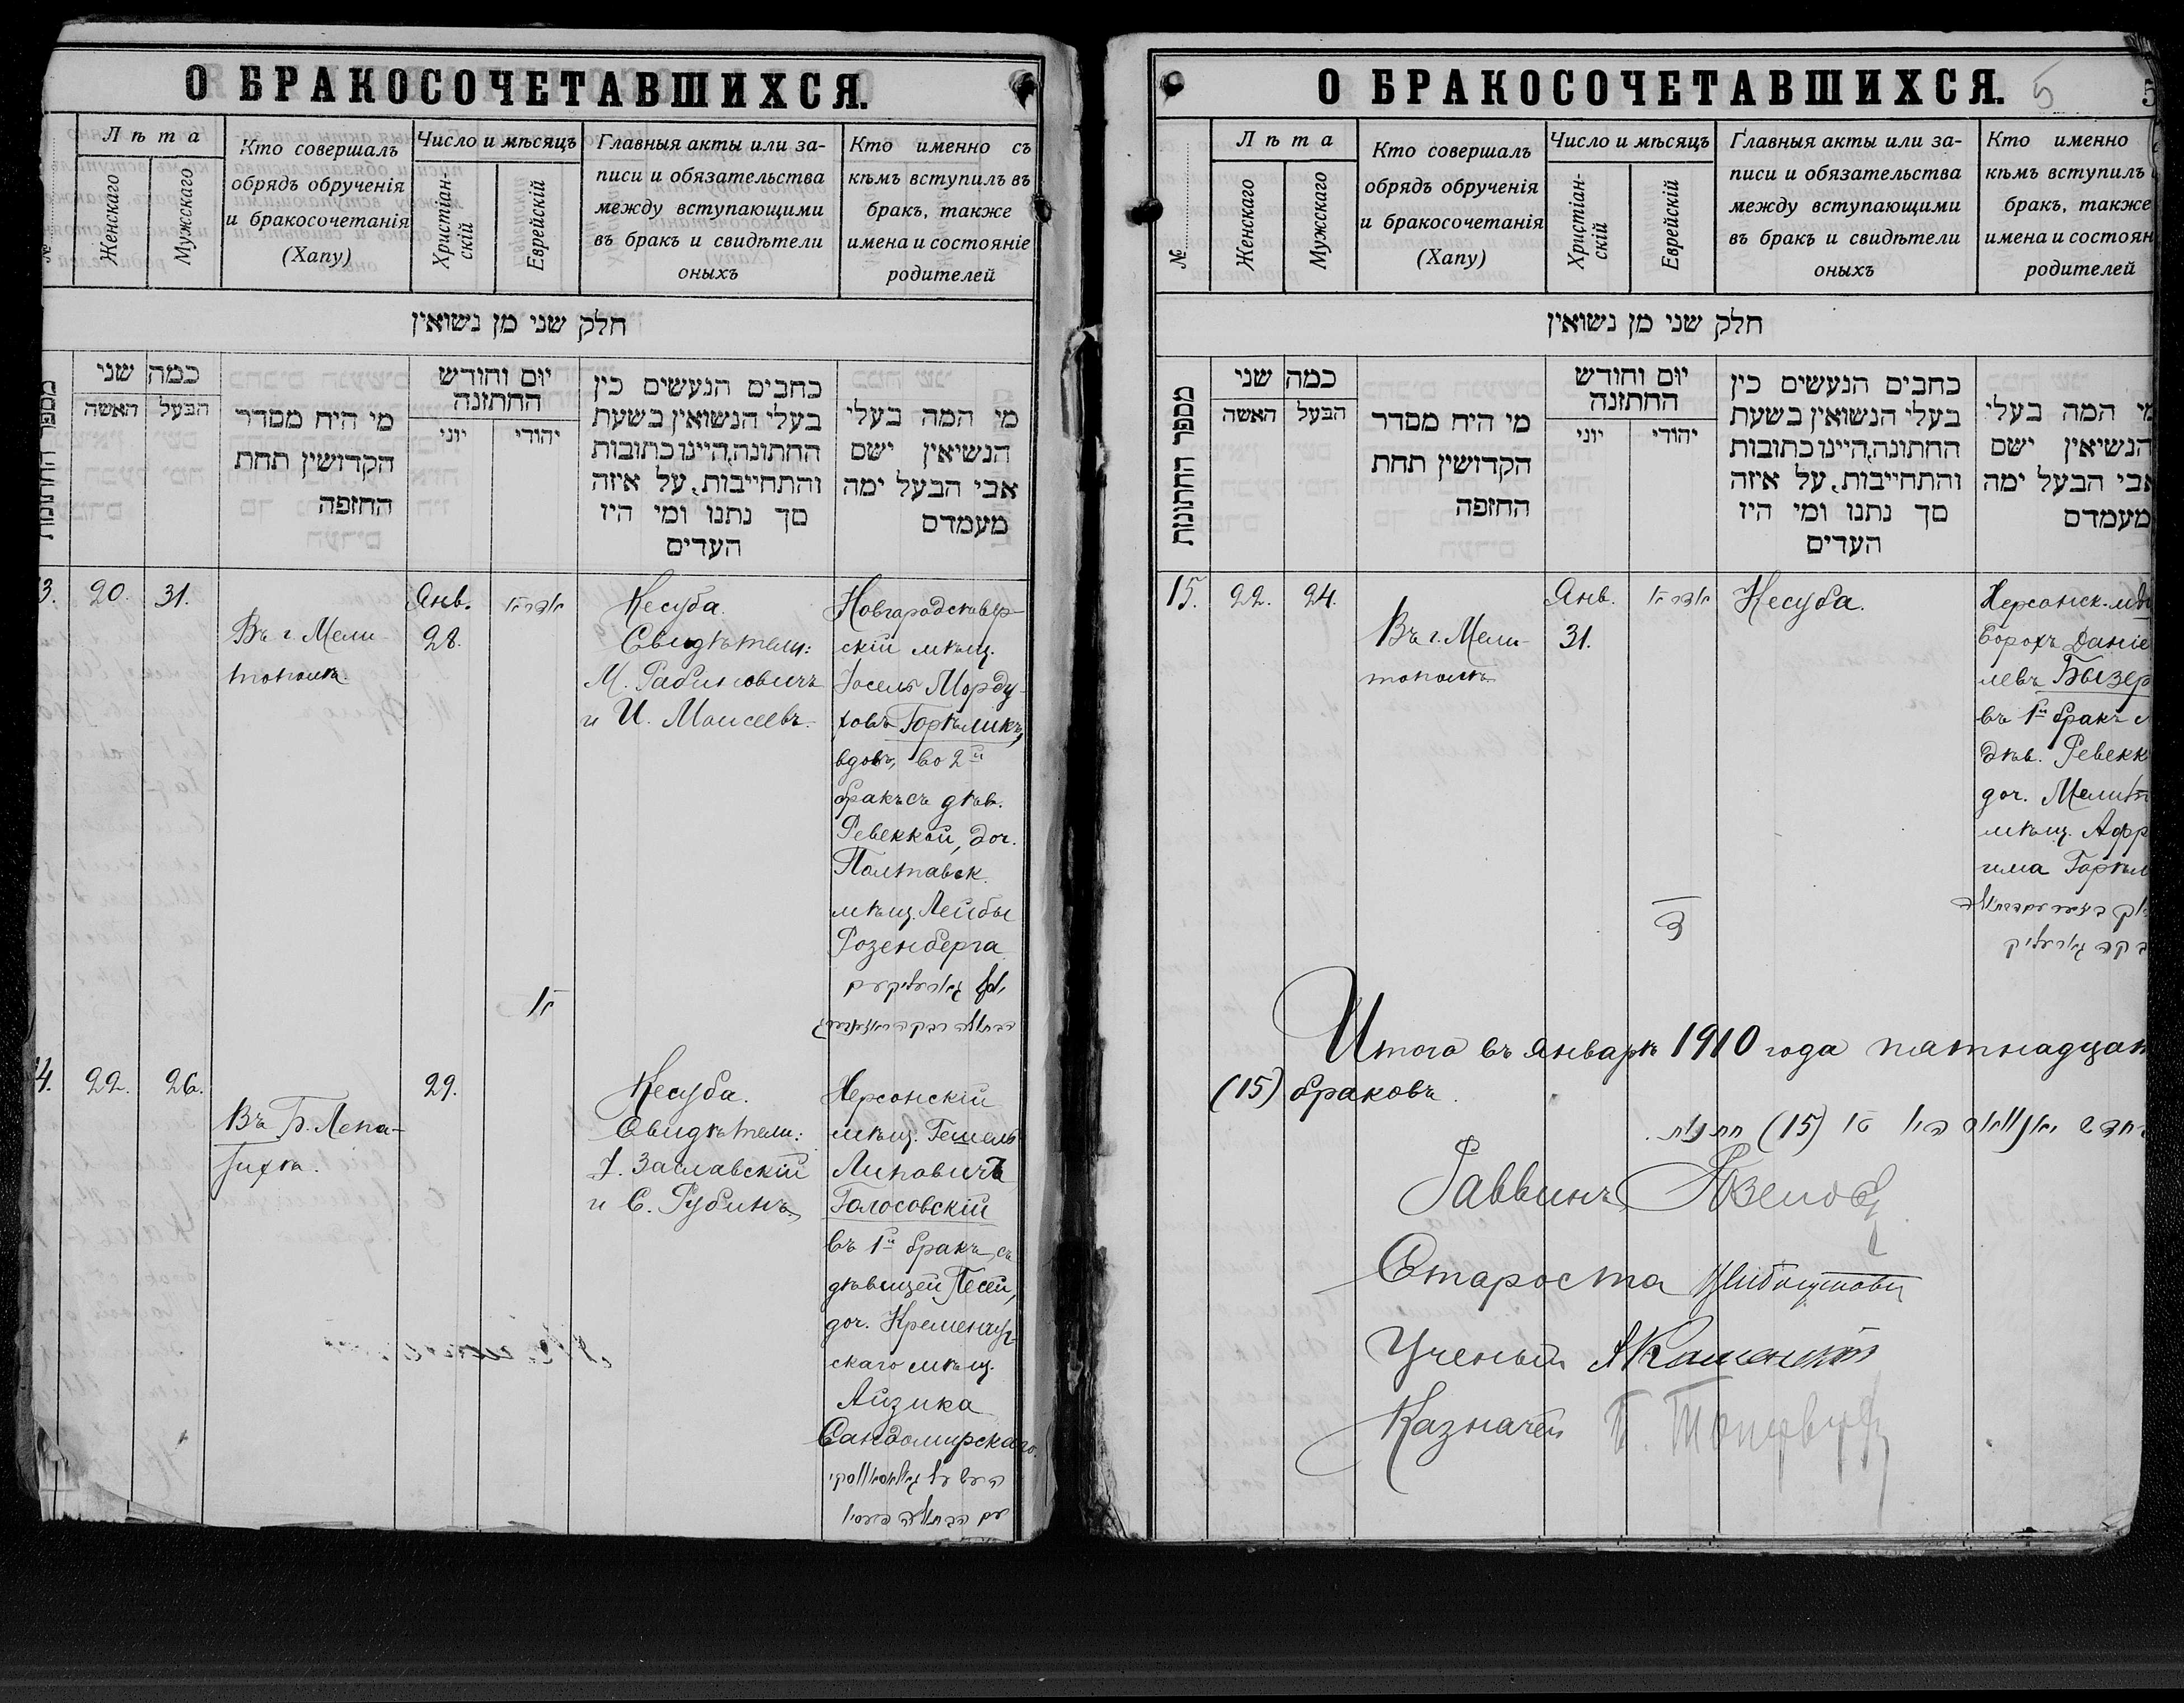 О БРАКОСОЧЕТАВШИХСЯ.
№
Лѣта
Женскаго
Мужскаго
Кто совершалъ
обрядъ обрученія
и бракосочетанія
(Хапу)
Число и мѣсяцъ
Христіан-
скій
Еврейскій
Главныя акты или за-
писи и обязательства
между вступающими
въ бракъ и свидѣтели
оныхъ
Кто именно съ
кѣмъ вступилъ въ
бракъ, также
имена и состояніе
родителей
חלק שני מן נשואין
מספר החתונות
כמה שני
האשה
הבעל
מי היח מסדר
הקדושין תחת
החזפה
יום וחודש
החתזנה
יוני
יהודי
כחבים הנעשים כין
בעלי הנשואין בשעת
החתונה, היינו כתובות
והתחייבות, על איזה
סך נתנו ומי היז
העדים
מי המה בעלי
הנשיאין ישם
אבי הבעל ימה
מעמדם
3.
20.
31.
Въ г. Мели-
тополѣ
Янв.
28.
Кесуба.
Свидѣтели:
М. Рабиновичъ
и И. Моисеевъ.
Новгородсѣвер-
скій мѣщ.
Іосель Морду-
ховъ Горѣликъ,
вдовъ, во 2й
бракъ съ дѣв.
Ревеккой, доч.
Полтавск.
мѣщ. Лейбы
Розенберга
4.
22.
26.
Въ Б. Лепа-
тихѣ.
29.
Кесуба.
Свидѣтели:
І. Заславскій
и С. Рубинъ
Херсонскій
мѣщ. Гешель
Липовичъ
Голосовскій
въ 1й бракъ съ
дѣвицей Песей,
доч. Кременчуг-
скаго мѣщ.
Айзика
Сандомирскаго.
О БРАКОСОЧЕТАВШИХСЯ.
5
5
№
Лѣта
Женскаго
Мужскаго
Кто совершалъ
обрядъ обрученія
и бракосочетанія
(Хапу)
Число и мѣсяцъ
Христіан-
скій
Еврейскій
Главныя акты или за-
писи и обязательства
между вступающими
въ бракъ и свидѣтели
оныхъ
Кто именно
кѣмъ вступилъ
бракъ, также
имена и состоян
родителей
חלק שני מן נשואין
מספר החתונות
כמה שני
האשה
הבעל
מי היח מסדר
הקדושין תחת
החזפה
יום וחודש
החתזנה
יוני
יהודי
כחבים הנעשים כין
בעלי הנשואין בשעת
החתונה, היינו כתובות
והתחייבות, על איזה
סך נתנו ומי היז
העדים
מי המה בעלי
הנשיאין ישם
אבי הבעל ימה
מעמדם
15.
22.
24.
Въ г. Мели-
тополѣ
Янв.
31.
Кесуба.
Херсонск. мѣщ
Борохъ Даніе
левъ Бызер
въ 1й бракъ с
дѣв. Ревекк
доч. Мелит
мѣщ. Афр
има Горѣл
Итого въ январѣ 1910 года пятнадцать
(15) браковъ.
Раввинъ
Староста
Ученый
Казначей